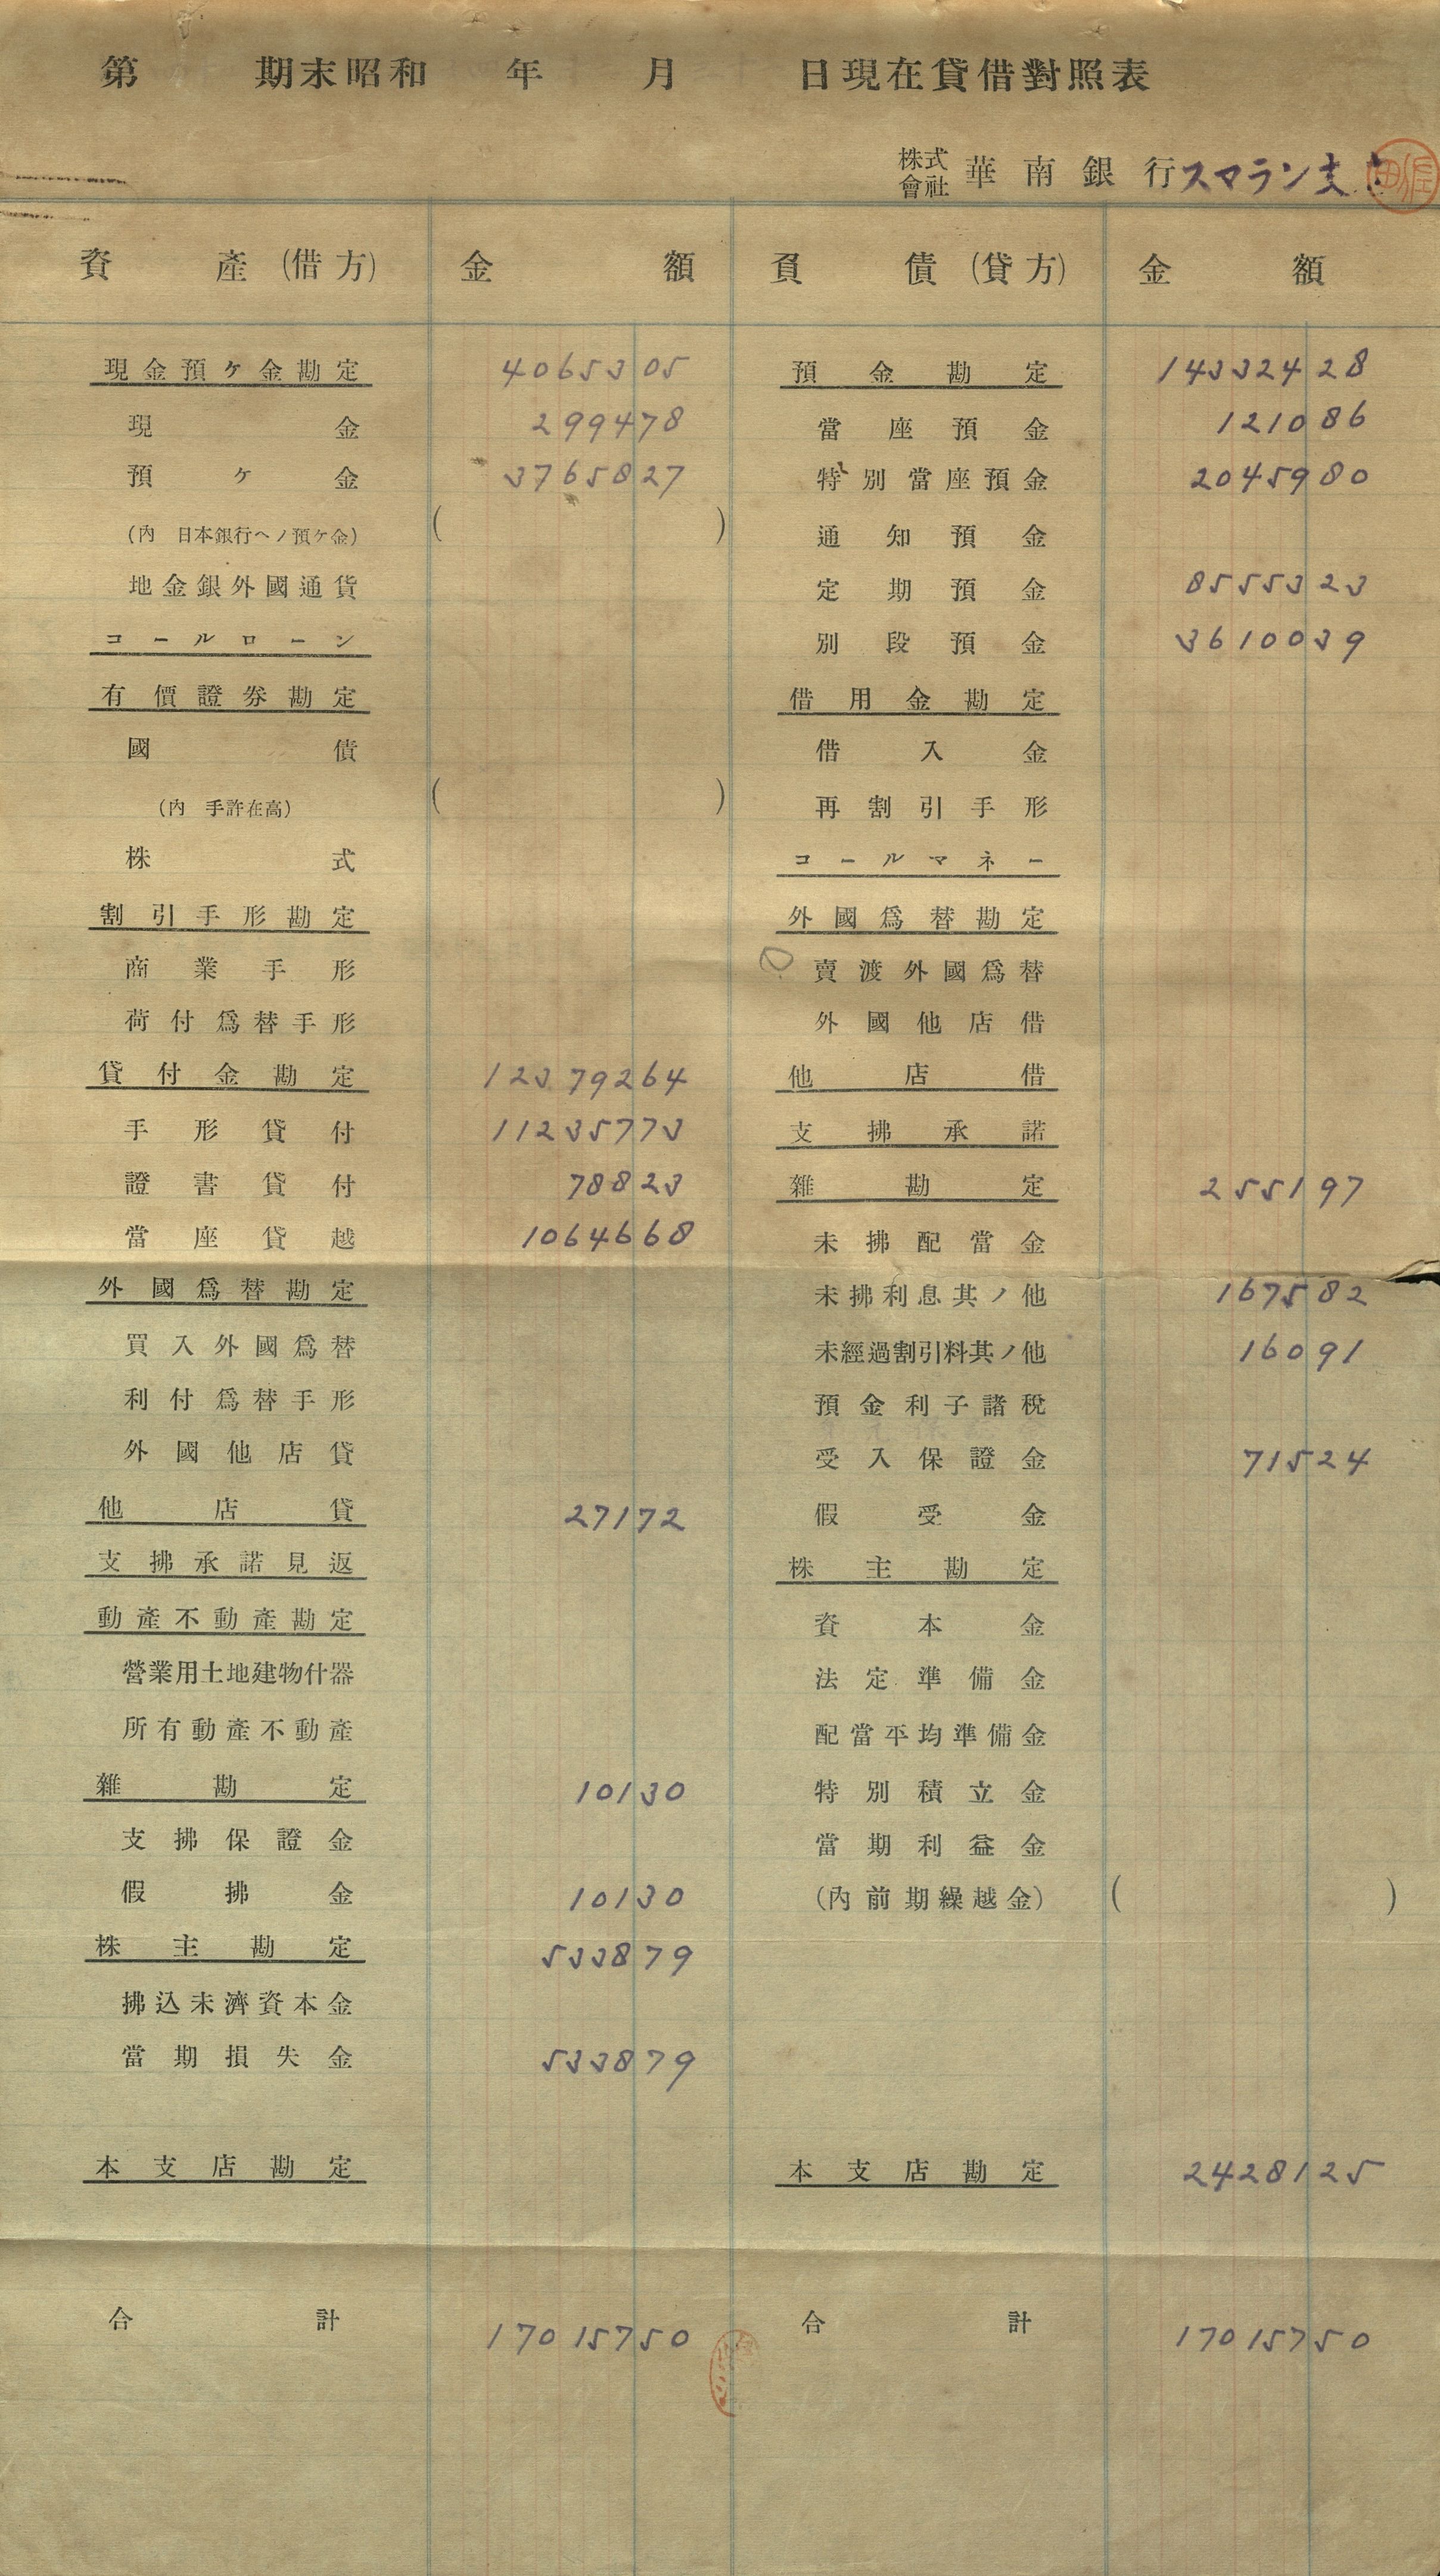 第 期末昭和 年 月 日現在貸借對照表
株式會社 華南銀行スマラン支
資產(借方) 金額 負債(貸方) 金額
現金預ケ金勘定 4065305 預金勘定 14332428
現金 299478 當座預金 121086
預ケ金 3765827 特別當座預金 2045980
(內 日本銀行ヘノ預ケ金) ( ) 通知預金
地金銀外國通貨 定期預金 8555323
コールローン 別段預金 3610039
有價證券勘定 借用金勘定
國債 借入金
(內 手許在高) ( ) 再割引手形
株式 コールマネー
割引手形勘定 外國爲替勘定
商業手形 賣渡外國爲替
荷付爲替手形 外國他店借
貸付金勘定 12379264 他店借
手形貸付 11235773 支拂承諾
證書貸付 78823 雜勘定 255197
當座貸越 1064668 未拂配當金
外國爲替勘定 未拂利息其ノ他 167582
買入外國爲替 未經過割引料其ノ他 16091
利付爲替手形 預金利子諸稅
外國他店貸 受入保證金 71524
他店貸 27172 假受金
支拂承諾見返 株主勘定
動產不動產勘定 資本金
營業用土地建物什器 法定準備金
所有動產不動產 配當平均準備金
雜勘定 10130 特別積立金
支拂保證金 當期利益金
假拂金 10130 (內前期繰越金) ( )
株主勘定 533879
拂込未濟資本金
當期損失金 533879
本支店勘定 本支店勘定 2428125
合計 17015750 合計 17015750